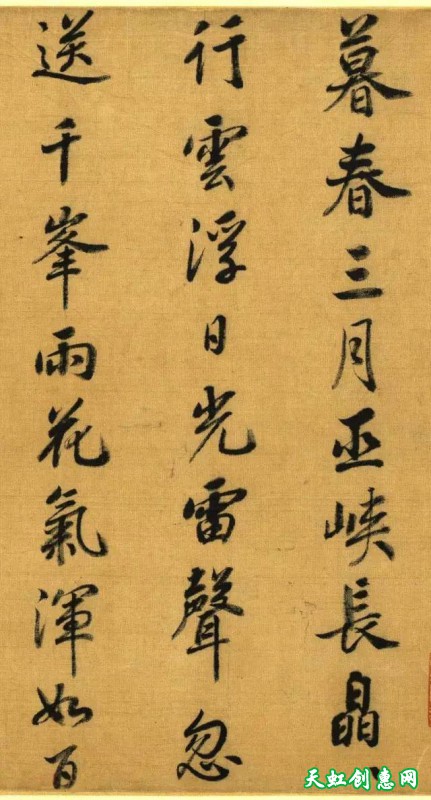 暮春三月巫峽長晶、
行雲浮日光雷聲忽
送千峯雨花氣渾如百
天虹创惠网